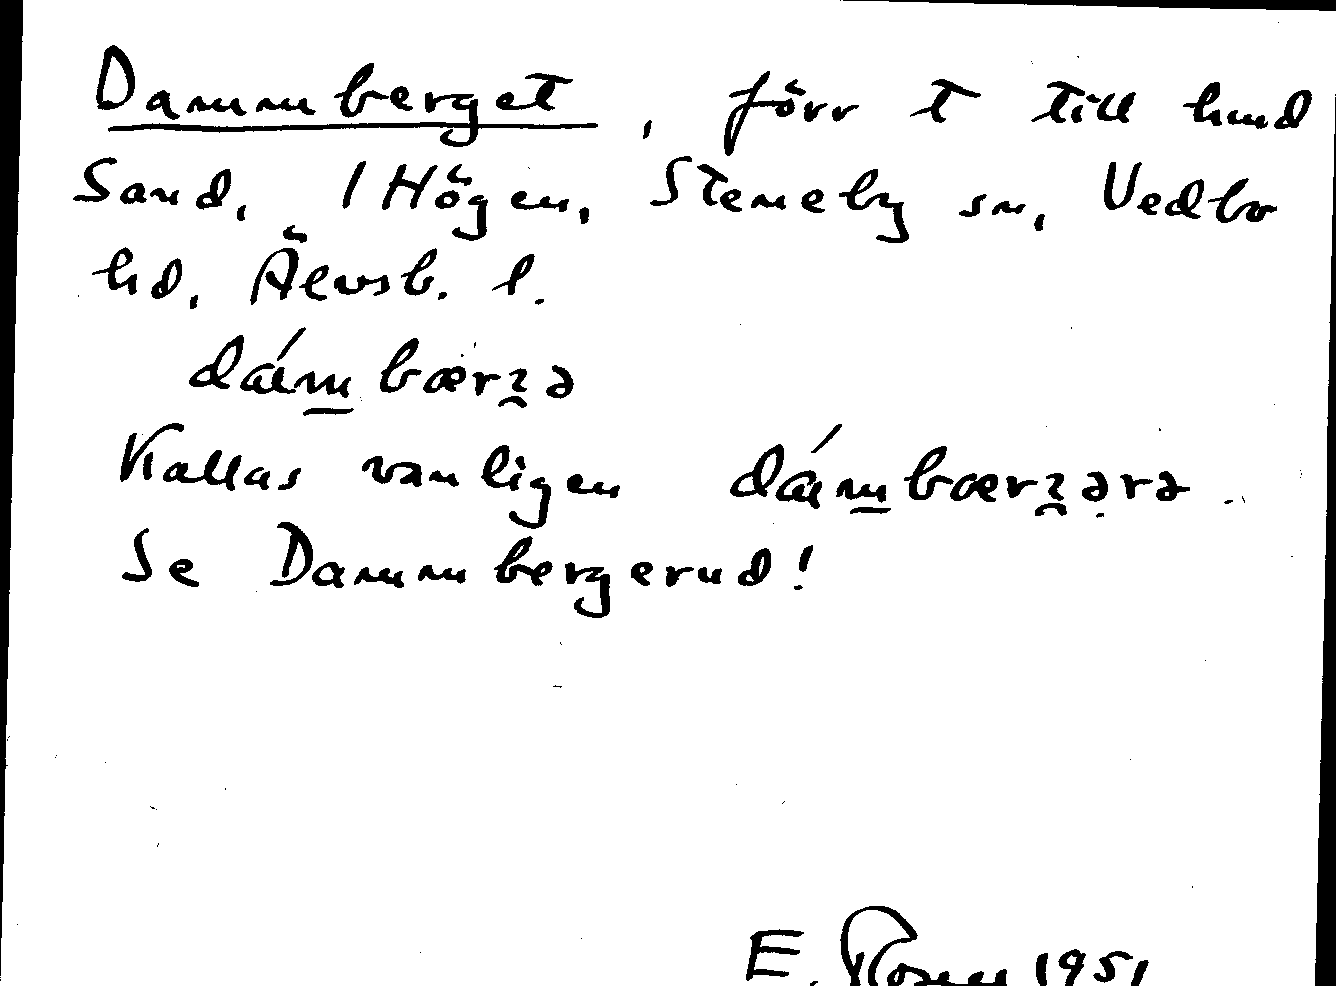 Dammberget, förr t till Lund
Sand, 1 Högen, Steneby sn, Vedbo
hd, Älvsb. l.
dám̲bærʒ̯ə
Kallas vanligen dám̲bærʒ̯ərə.
Se Dammbergerud!
E. Rosell 1951